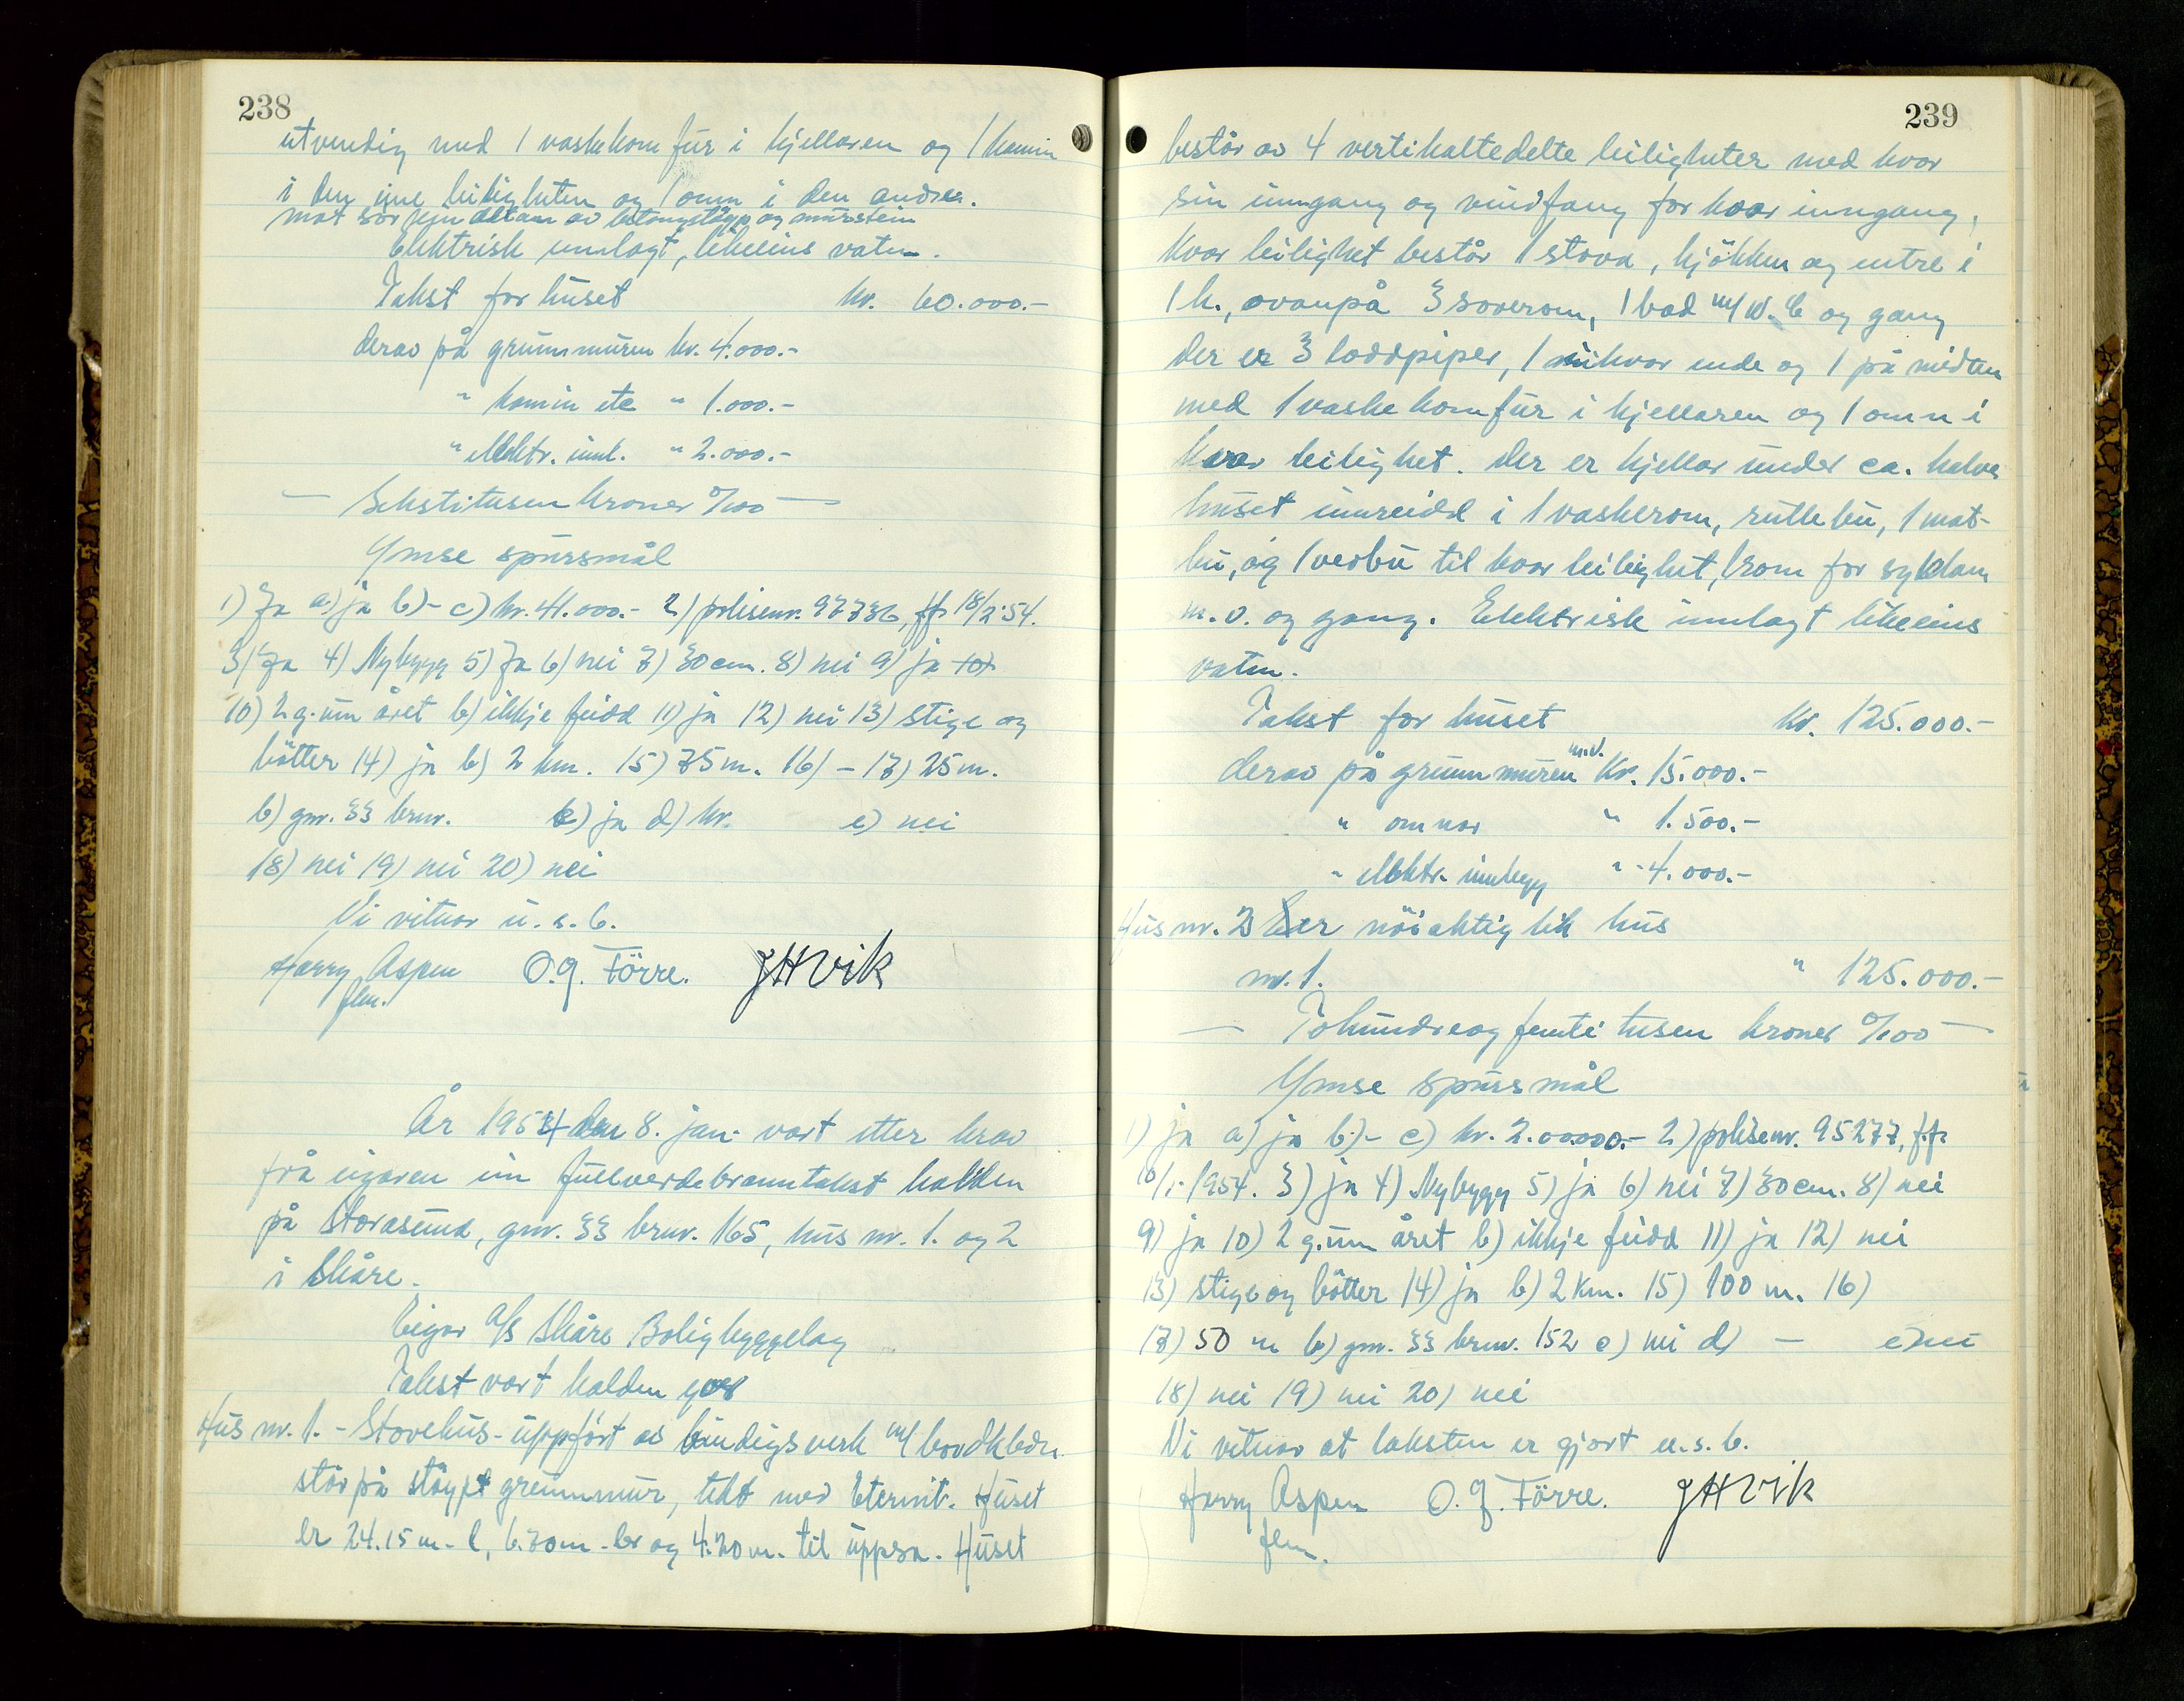 238
utvendig med 1 vaskekomfür i kjellaren og 1 kamin
i den eine leiligheten og 1 omn i den andre.
mot sör av betongstøyp og mürstein
Elektrisk innlagt, likeeins vatn.
Takst for hüset kr. 60.000.-
derav på grunnmüren kr. 4.000.-
" kamin etc " 1.000.-
" elektr. innl. " 2.000.-
— Sekstitusen kroner %00 —
Ymse spürsmål
1) Ja a) ja b) - c) kr. 41.000.- 2) polisenr. 97736, ff. 18/2-54.
3) Ja 4) Nybygg 5) Ja 6) nei 7) 30 cm. 8) nei 9) ja
10) 2 g. üm året b) ikkje feidd 11) ja 12) nei 13) stige og
bötter 14) ja b) 2 km. 15) 75 m. 16) - 17) 25 m.
b) gnr. 33 brnr. c) ja d) kr. e) nei
18) nei 19) nei 20) nei
Vi vitnar ü. s. b.
Harry Aspen O. G. Förre. JH Vik
flm.
År 1954 den 8. jan. vart etter krav
frå eigaren ein füllverdebranntakst halden
på Storasünd, gnr. 33 brnr. 165, hüs nr. 1. og 2
i Skåre.
Eigar A/S Skåre Boligbyggelag
Takst vart halden
Hüs nr. 1. - Stovehüs - üppfört av bindigsverk m/ bordkledn.
står på støypt grünnmür, tekt med Eternit. Hüset
er 24.15 m. l, 6.70 m. br og 4.20 m. til üppsa. Hüset
239
består av 4 vertikaltedelte leiligheter med kvar
sin inngang og vindfang for kvar inngang.
Kvar leilighet består 1 stova, kjökken og entre i
1 h., ovanpå 3 soverom, 1 bad m/ W.C og gang
Der er 3 loddpiper, 1 i kvar ende og 1 på midten
med 1 vaskekomfür i kjellaren og 1 omn i
kvar leilighet. Der er kjellar ünder ca. halve
hüset innreidd i 1 vaskerom, rüllebü, 1 mat-
bü, og 1 vedbü til kvar leilighet, 1 rom for
m. v. og gang. Elektrisk innlagt likeeins
vatn.
Takst for hüset kr. 125.000.-
derav på grünnmüren m.v. kr. 15.000.-
" omnar " 1.500.-
" elektr. innlegg " 4.000.-
Hüs nr. 2 er nöiaktig lik hüs
nr. 1. " 125.000.-
— Tohundreogfemti tusen kroner %00 —
Ymse spürsmål
1) ja a) ja b) - c) kr. 2.00.000.- 2) polisenr. 95277, f.f.
/1-1954. 3) ja 4) Nybygg 5) ja 6) nei 7) 30 cm. 8) nei
9) ja 10) 2 g. üm året b) ikkje feidd 11) ja 12) nei
13) stige og bötter 14) ja b) 2 km. 15) 100 m. 16)
17) 50 m b) gnr. 33 brnr. 152 c) nei d) — e) nei
18) nei 19) nei 20) nei
Vi vitnar at taksten er gjort u. s. b.
Harry Aspen O. G. Förre. JH Vik
flm.